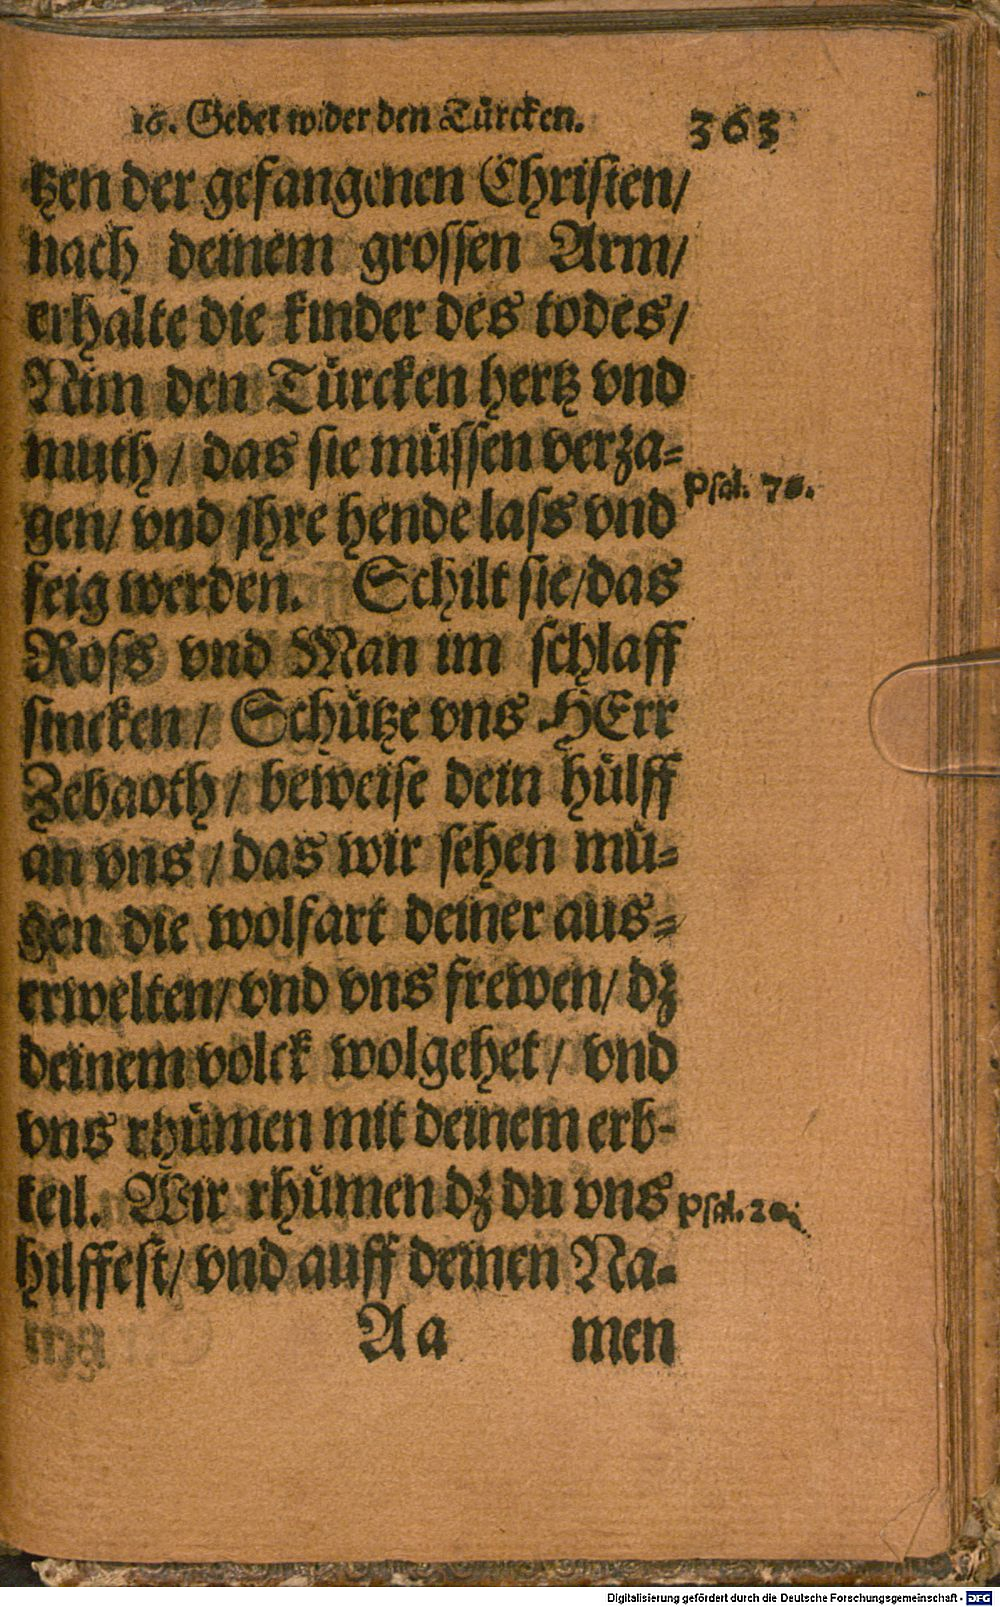 16. Gebet wider den Türcken. 363
tzen der gefangenen Christen/
nach deinem grossen Arm/
erhalte die kinder des todes/
Nim den Türcken hertz vnd
muth/ das sie müssen verza-
gen/ vnd jhre hende lass vnd
feig werden. Schilt sie/das
Psal.
Ross vnd Man im schlaff
sincken/ Schütze vns HErr
Zebaoth/ beweise dein hülff
an vns/ das wir sehen mü-
gen die wolfart deiner aus-
erwelten/ vnd vns frewen/ dz
deinem volck wolgehet/ vnd
vns rhümen mit deinem erb-
teil. Wir rhümen dz du vns
Psal. 20.
hilffest/ vnd auff deinen Na-
Aa men
Digitalisierung gefördert durch die Deutsche Forschungsgemeinschaft - DFG